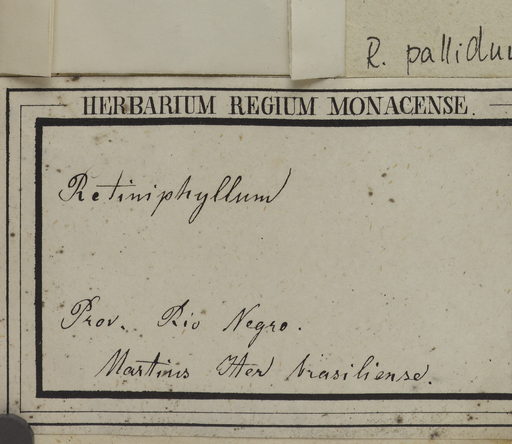 R. pallidu
HERBARIUM REGIUM MONACENSE.
Retiniphyllum
Prov. Rio Negro.
Martius Iter brasiliense.